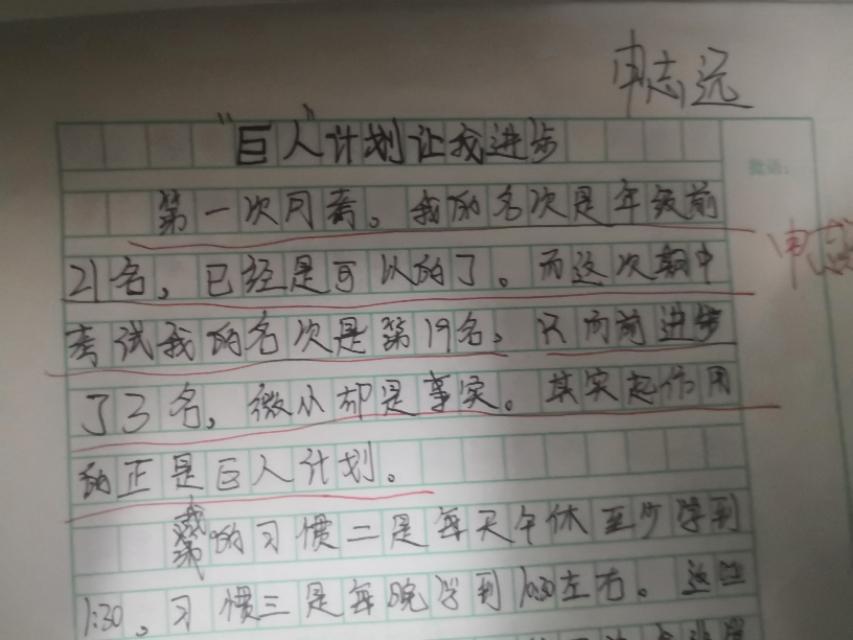 申志远
"巨人"计划让我进步
批语:
第一次月考。我的名次是年级前
21名,已经是可以的了。而这次期中
考试我的名次是第19名。只向前进步
了3名,微小却是事实。其实起作用
的正是巨人计划。
我的习惯二是每天午休至少学到
1:30。习惯三是每晚学到10:30左右。这些